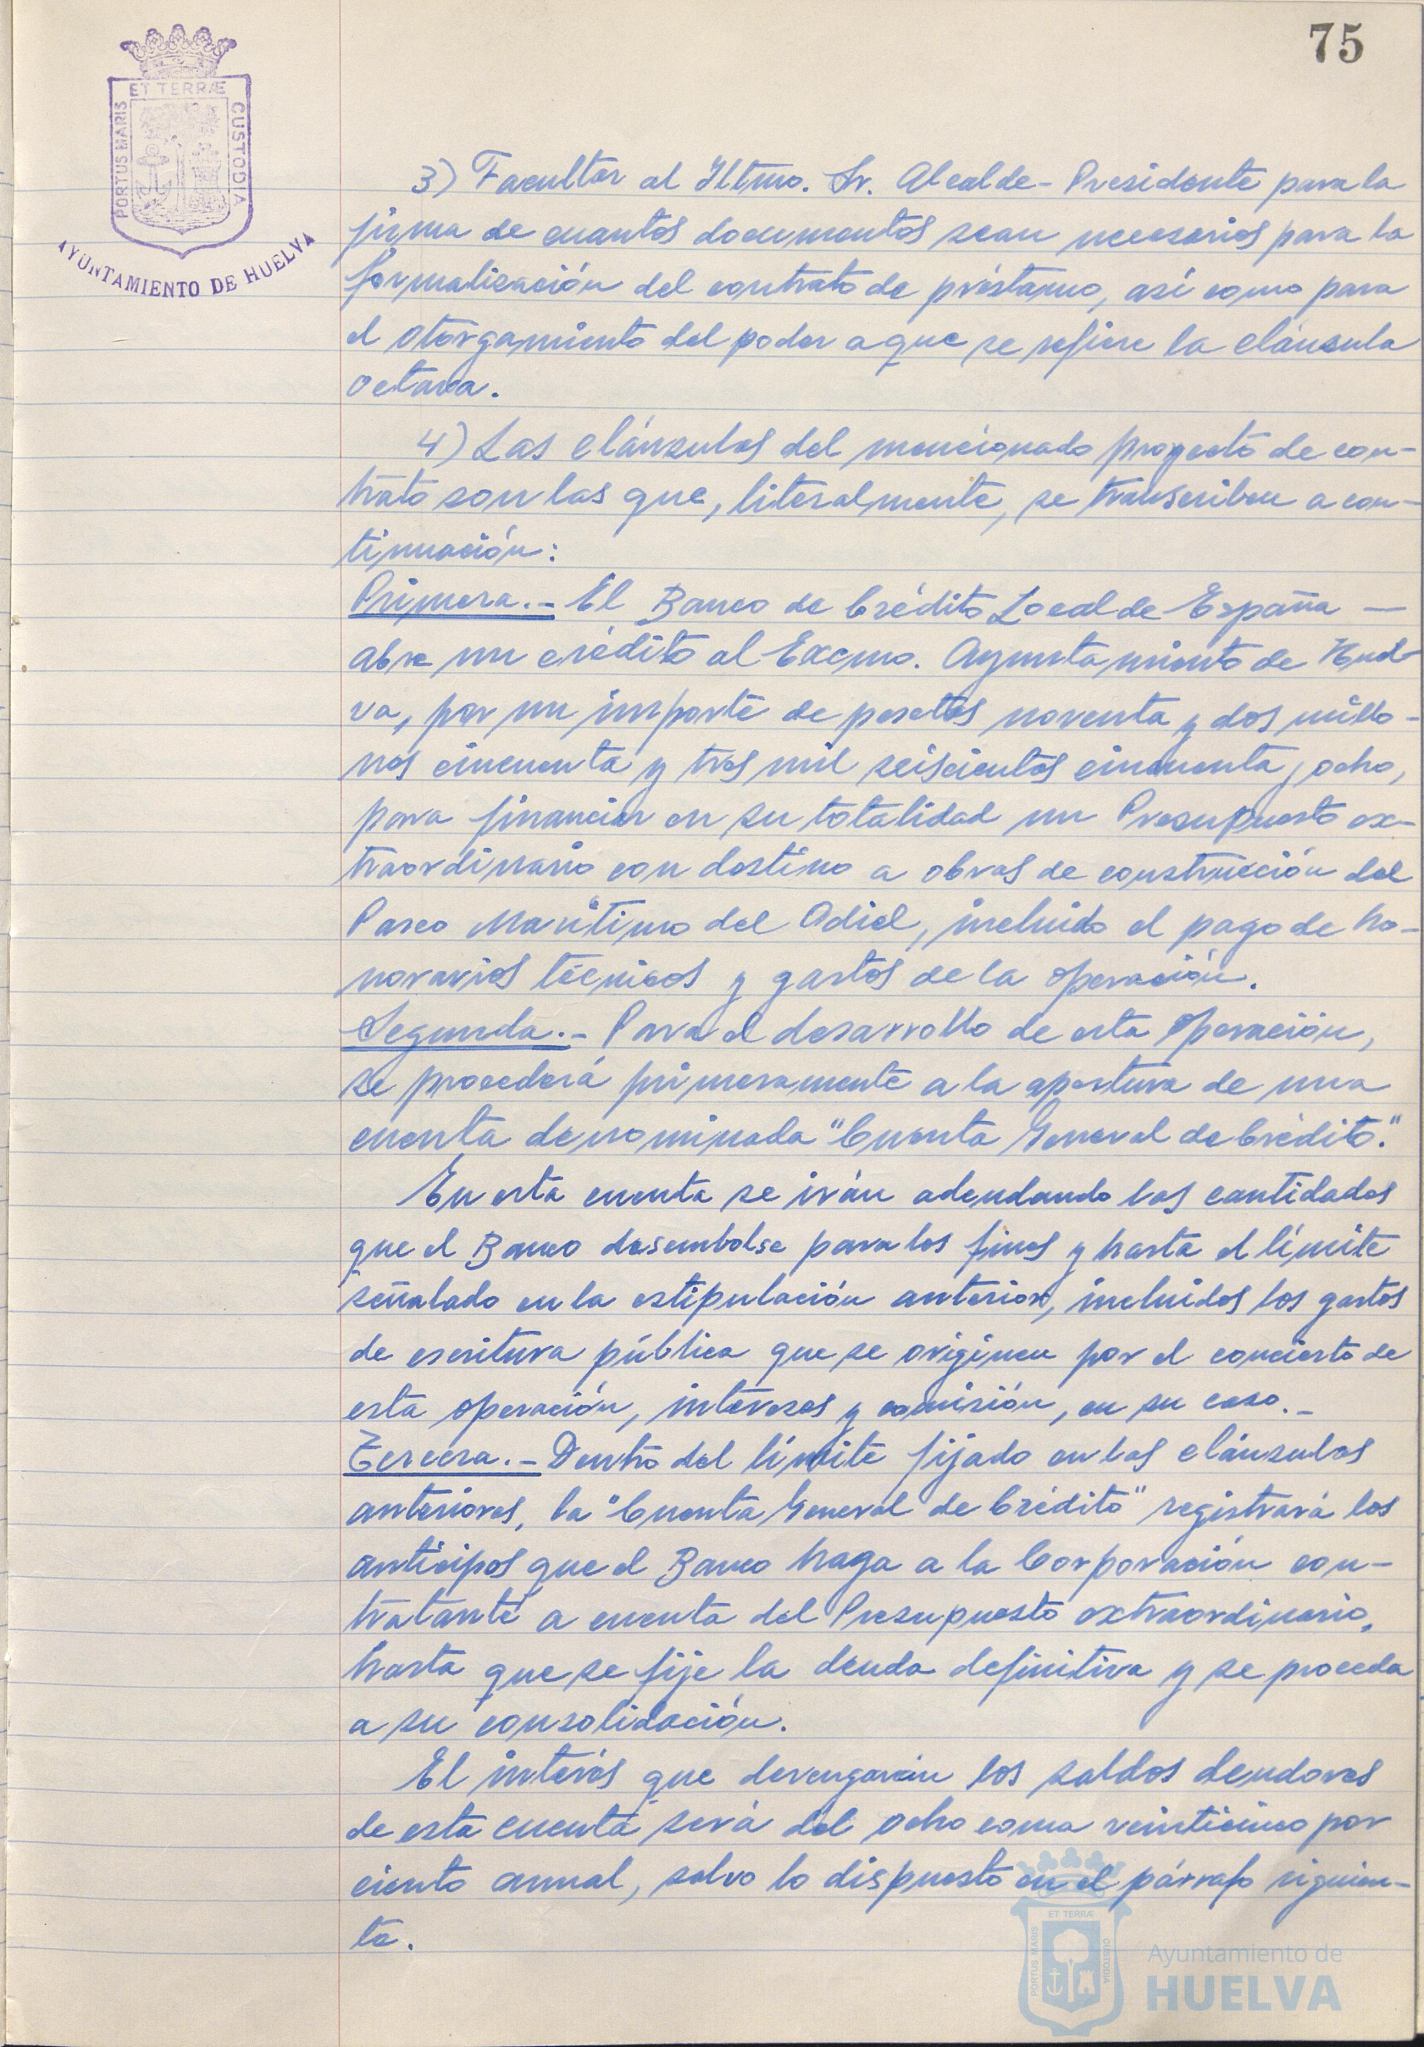 75
ET TERRÆ
PORTUS MARIS
CUSTODIA
AYUNTAMIENTO DE HUELVA
3) Facultar al Iltmo. Sr. Alcalde-Presidente para la
firma de cuantos documentos sean necesarios para la
formalización del contrato de préstamo, así como para
el otorgamiento del poder a que se refiere la cláusula
octava.
4) Las cláusulas del mencionado proyecto de con-
trato son las que, literalmente, se transcriben a con-
tinuación:
Primera.- El Banco de Crédito Local de España —
abre un crédito al Excmo. Ayuntamiento de Huel-
va, por un importe de pesetas noventa y dos millo-
nes cincuenta y tres mil seiscientas cincuenta y ocho,
para financiar en su totalidad un Presupuesto ex-
traordinario con destino a obras de construcción del
Paseo Marítimo del Odiel, incluido el pago de ho-
norarios técnicos y gastos de la operación.
Segunda.- Para el desarrollo de esta operación,
se procederá primeramente a la apertura de una
cuenta denominada "Cuenta General de Crédito".
En esta cuenta se irán adeudando las cantidades
que el Banco desembolse para los fines y hasta el límite
señalado en la estipulación anterior, incluidos los gastos
de escritura pública que se originen por el concierto de
esta operación, intereses y comisión, en su caso.-
Tercera.- Dentro del límite fijado en las cláusulas
anteriores, la "Cuenta General de Crédito" registrará los
anticipos que el Banco haga a la Corporación con-
tratante a cuenta del Presupuesto extraordinario,
hasta que se fije la deuda definitiva y se proceda
a su consolidación.
El interés que devengarán los saldos deudores
de esta cuenta será del ocho coma veinticinco por
ciento anual, salvo lo dispuesto en el párrafo siguien-
te.
ET TERRÆ
PORTUS MARIS
CUSTODIA
Ayuntamiento de
HUELVA